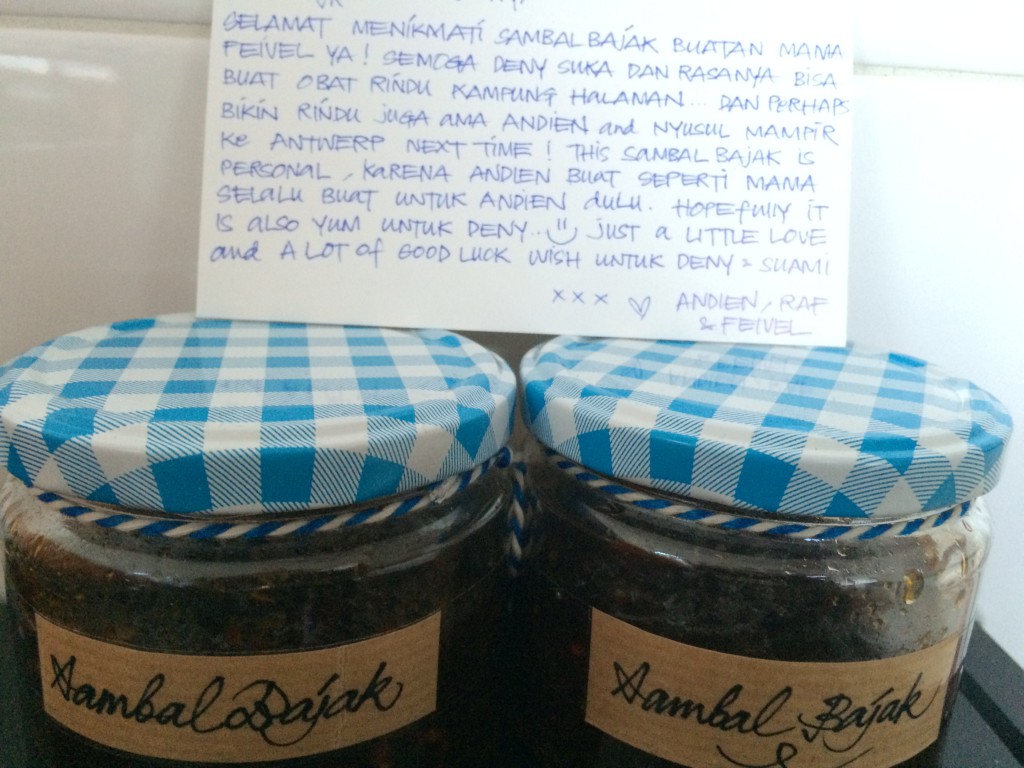 SELAMAT MENIKMATI SAMBAL BAJAK BUATAN MAMA
FEIVEL YA! SEMOGA DENY SUKA DAN RASANYA BISA
BUAT OBAT RINDU KAMPUNG HALAMAN... DAN PERHAPS
BIKIN RINDU juga AMA ANDIEN and NYUSUL MAMPIR
KE ANTWERP NEXT TIME! THIS SAMBAL BAJAK IS
PERSONAL, KARENA ANDIEN BUAT SEPERTI MAMA
SELALU BUAT UNTUK ANDIEN dulu. HOPEfully IT
IS also YUM UNTUK DENY... just a LITTLE LOVE
and A LOT of GOOD LUCK WISH UNTUK DENY & SUAMI
xxx ♡ ANDIEN, RAF
& FEIVEL
Sambal Bajak
Sambal Bajak